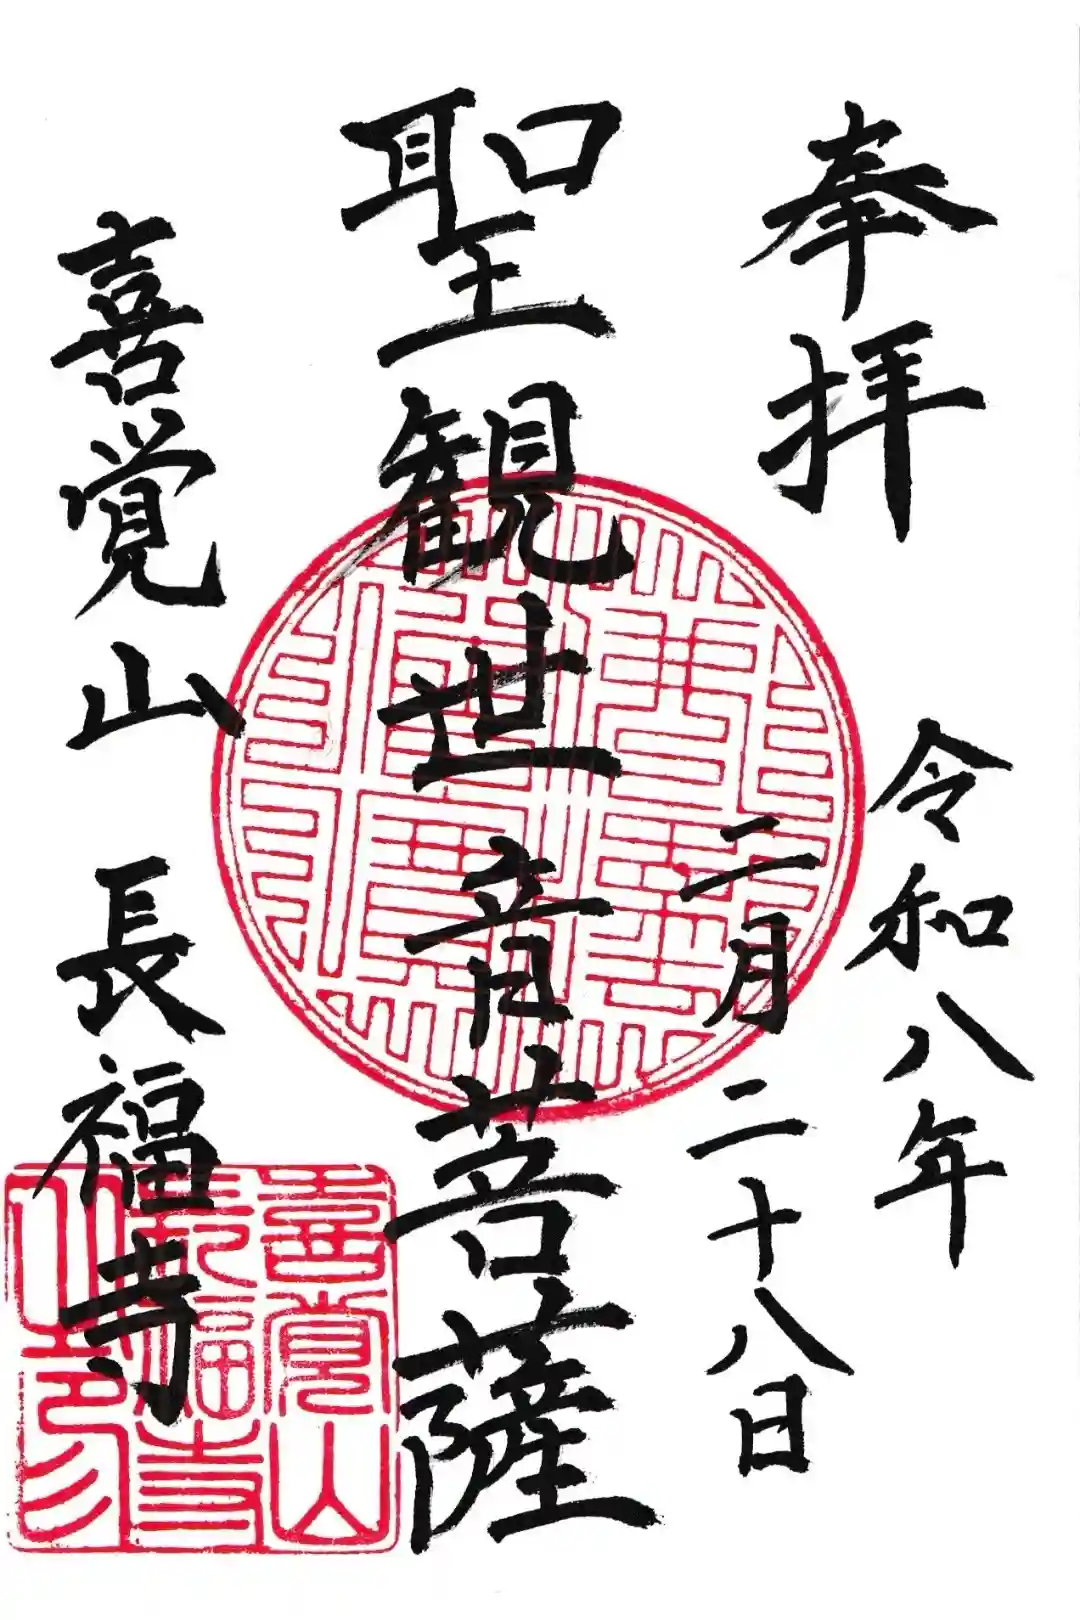 奉拝
令和八年
二月二十八日
聖観世音菩薩
喜覚山 長福寺
喜覚山
長福寺
之印